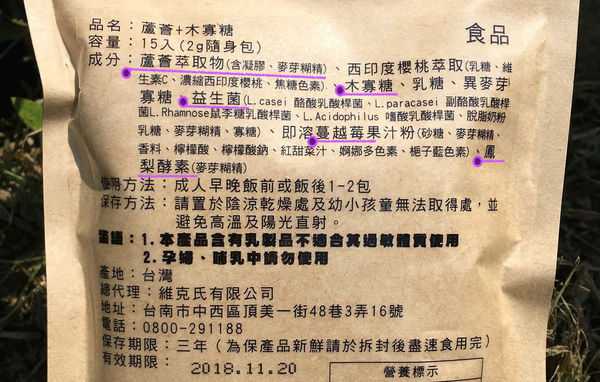 品名：蘆薈+木寡糖
食品
容量：15入(2g隨身包)
成分：蘆薈萃取物(含凝膠、麥芽糊精)、西印度櫻桃萃取(乳糖、維
生素C、濃縮西印度櫻桃、焦糖色素)、木寡糖、乳糖、異麥芽
寡糖、益生菌(L.casei 酪酸乳酸桿菌、L.paracasei 副酪酸乳酸桿
菌L.Rhamnose鼠李糖乳酸桿菌、L.Acidophilus 嗜酸乳酸桿菌、脫脂奶粉
乳糖、麥芽糊精、寡糖)、即溶蔓越莓果汁粉(砂糖、麥芽糊精、
香料、檸檬酸、檸檬酸鈉、紅甜菜汁、婀娜多色素、梔子藍色素)、鳳
梨酵素(麥芽糊精)
使用方法：成人早晚飯前或飯後1-2包
保存方法：請置於陰涼乾燥處及幼小孩童無法取得處，並
避免高溫及陽光直射。
1.本產品含有乳製品不適合其過敏體質使用
2.孕婦、哺乳中請勿使用
產地：台灣
總代理：維克氏有限公司
地址：台南市中西區頂美一街48巷3弄16號
電話：0800-291188
保存期限：三年(為保產品新鮮請於拆封後盡速食用完)
有效期限：2018.11.20
營養標示